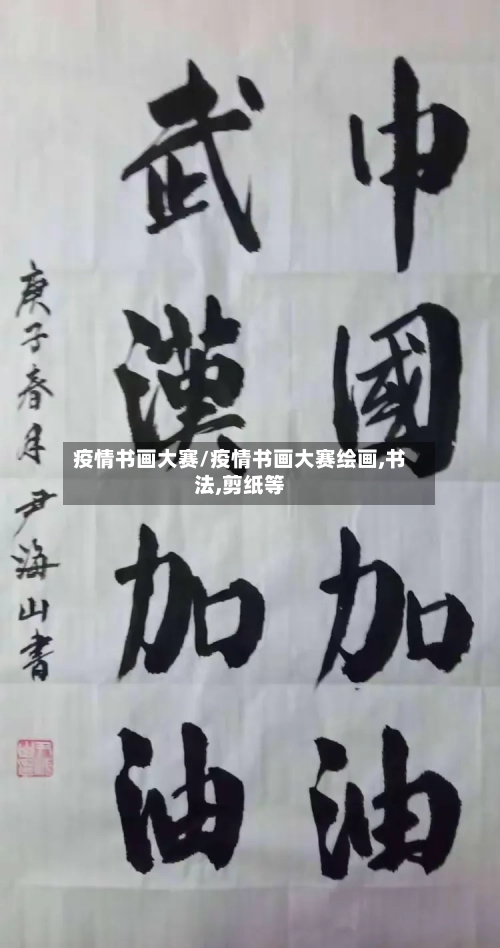 中國加油
武漢加油
庚子春月尹海山書
疫情书画大赛/疫情书画大赛绘画,书
法,剪纸等